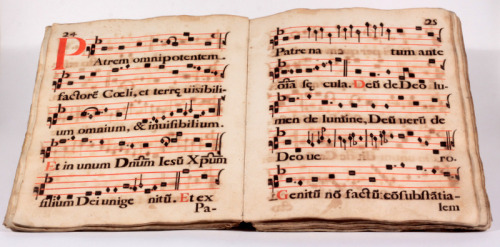 24
Patrem omnipotentem.
factorē Cœli, et terrę uisibili-
um omnium, & inuisibilium.
Et in unum Dnūm Iesū Xpum
filium Dei unige nitū. Et ex
Pa-
25
Patre na tum ante
oīa sęcula. Deū de Deo lu-
men de lumine, Deū uerū de
Deo ue ro.
Genitū nō factū cōsubstātia-
lem